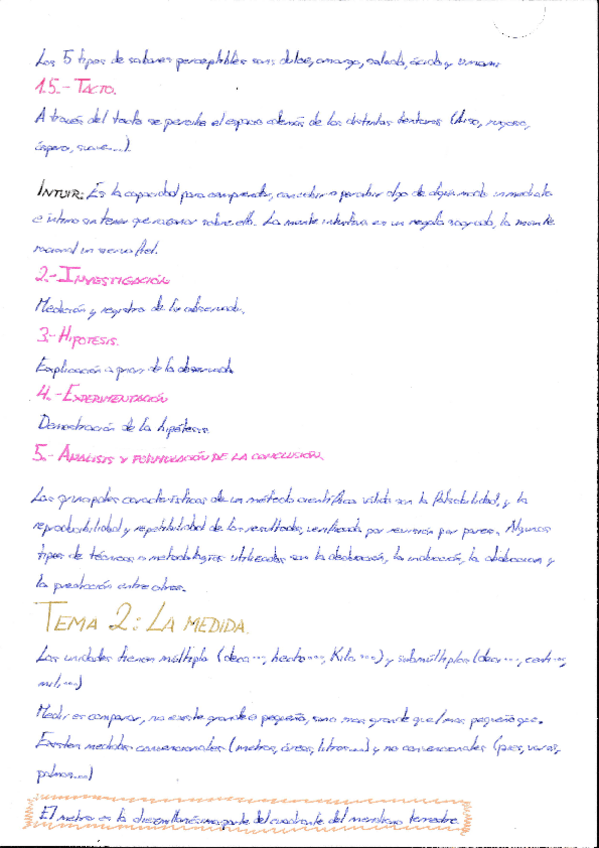 Los 5 tipos de sabores perceptibles son: dulce, amargo, salado, ácido y umami
1.5.- TACTO.
A través del tacto se percibe el espacio además de las distintas texturas (liso, rugoso,
áspero, suave...).
INTUIR: Es la capacidad para comprender, concebir o percibir algo de algún modo inmediata
e íntimo sin tener que razonar sobre ello. La mente intuitiva es un regalo sagrado, la mente
racional un siervo fiel.
2.- INVESTIGACIÓN
Medición y registro de lo observado.
3.- HIPOTESIS.
Explicación a priori de lo observado
4.- EXPERIMENTACIÓN
Demostración de la hipótesis.
5.- ANALISIS Y FORMULACIÓN DE LA CONCLUSIÓN.
Las principales características de un método científico válido son la falsabilidad, y la
reproducibilidad y repetibilidad de los resultados, verificada por revisión por pares. Algunos
tipos de técnicas o metodologías utilizadas son la deducción, la inducción, la abducción y
la predicción entre otras.
TEMA 2: LA MEDIDA.
Las unidades tienen múltiplo (deca..., hecto..., Kilo...) y submúltiplos (deci..., centi...,
mili...)
Medir es comparar, no existe grande o pequeño, sino mas grande que/mas pequeño que.
Existen medidas convencionales (metros, áreas, litros...) y no convencionales (pies, varas,
palmos...)
El metro es la diezmillonésima parte del cuadrante del meridiano terrestre.